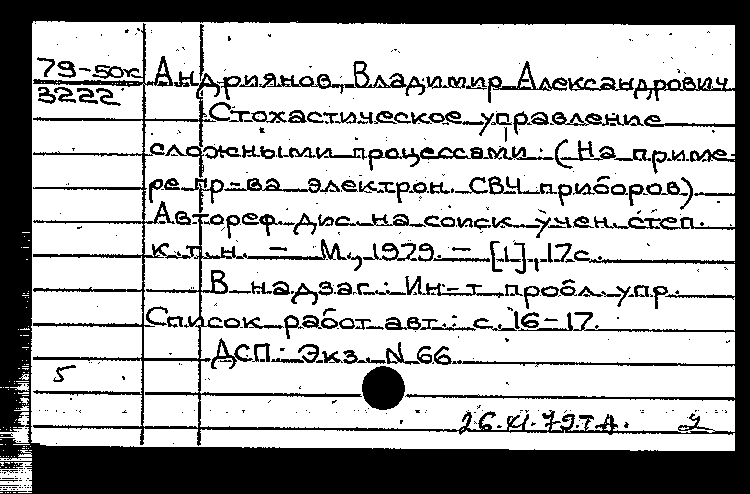 79-50к Андриянов, Владимир Александрович
3222
Стохастическое управление
сложными процессами: (На приме-
ре пр-ва электрон. СВЧ приборов).
Автореф. дис. на соиск. учен. степ.
к.т.н. - М., 1979. - [1], 17с.
В надзаг.: Ин-т пробл. упр.
Список работ авт.: с. 16-17.
ДСП. Экз. N 66.
5
26.XI.79.Т.А.